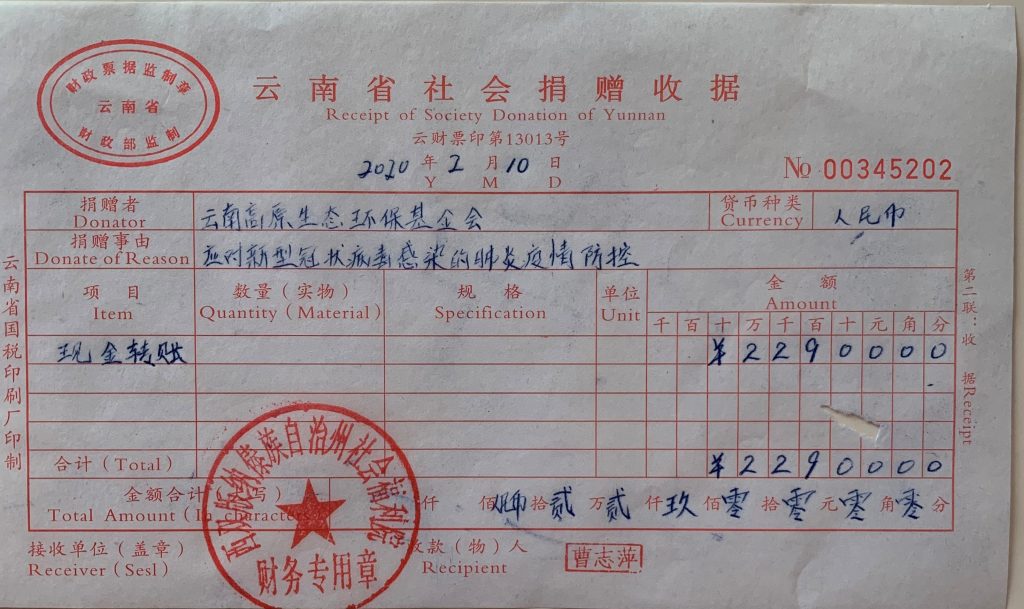 财政票据监制章
云南省
财政部监制
云南省社会捐赠收据
Receipt of Society Donation of Yunnan
云财票印第13013号
2020年2月10日
Y M D
№ 00345202
捐赠者 云南高原生态环保基金会 货币种类 人民币
Donator Currency
捐赠事由 应对新型冠状病毒感染的肺炎疫情防控
Donate of Reason
项目 数量（实物） 规格 单位 金额
Item Quantity（Material） Specification Unit Amount
千 百 十 万 千 百 十 元 角 分
现金转账 ¥ 2 2 9 0 0 0 0
合计（Total） ¥ 2 2 9 0 0 0 0
金额合计 写）仟 佰 拾 贰 万 贰 仟 玖 佰 零 拾 零 元 零 角 零 分
Total Amount（In character
接收单位（盖章） 收款（物）人 曹志萍
Receiver（Sesl） Recipient
西双版纳傣族自治州社会福利院
财务专用章
云南省国税印刷厂印制
第二联：收据 Receipt